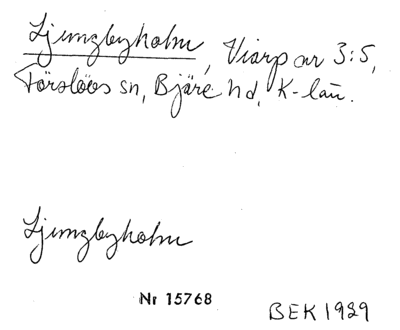 Ljungbyholm, Viarp nr 3:5,
Förslövs sn, Bjäre hd, K-län.
Ljungbyholm
Nr 15768
BEK 1929